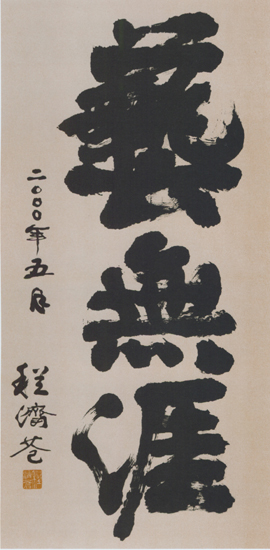 藝無涯
二〇〇〇年五月
程濟苍